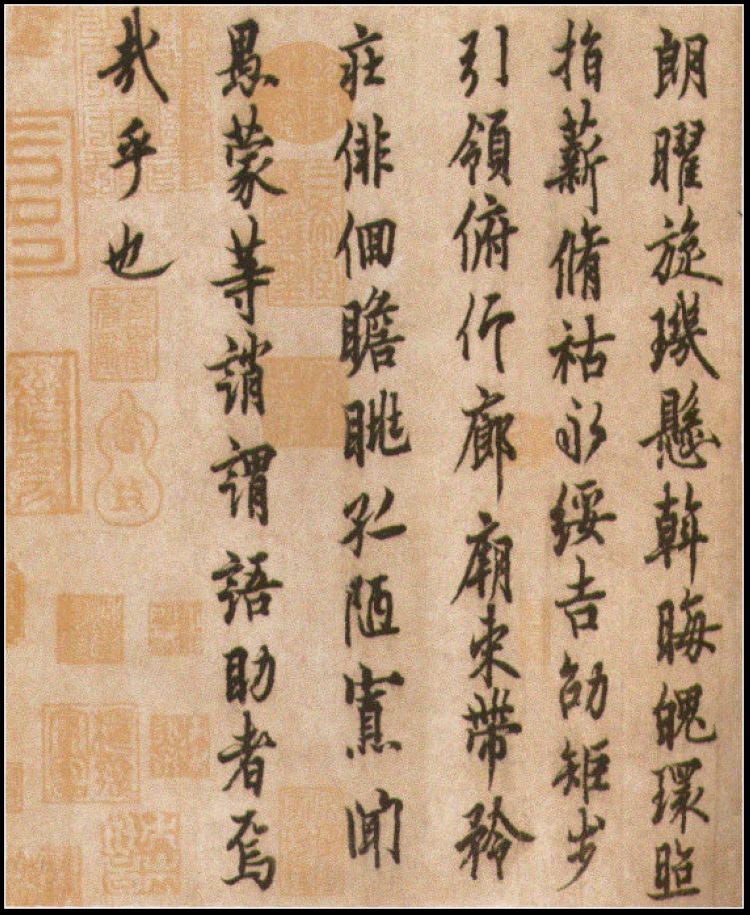 朗曜旋璣懸斡晦魄環照
指薪脩祜永綏吉劭矩步
引領俯仰廊廟束帶矜
莊俳佪瞻眺孤陋寡聞
愚蒙等誚謂語助者焉
哉乎也